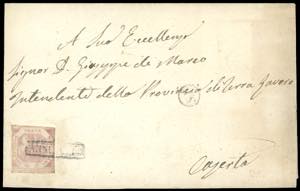 A Sua Eccellenza
Signor D. Giuseppe de Marco
Intendente della Provincia di Terra Lavoro
Caserta